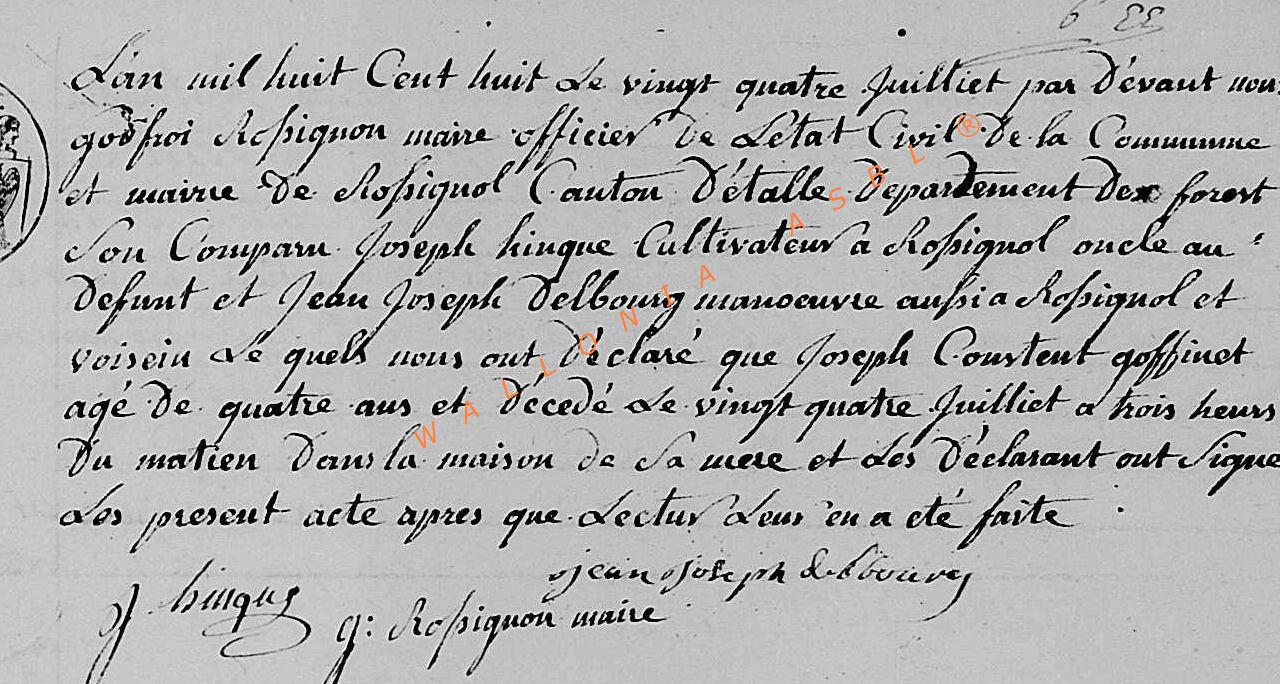 L'an mil huit Cent huit Le vingt quatre Juilliet par D'évant nous
godfroi Rossignon maire officier De L'état Civil De la Commumne
et mairie De Rossignol Canton D'étalle Departement Des forest
Son Comparu Joseph hinque Cultivateur a Rossignol oncle au
Defunt et Jean Joseph Delbourg manoeuvre aussi a Rossignol et
voisein Lé quels nous ont Déclaré que Joseph Constent goffinet
agé De quatre ans et Décedé Le vingt quatre Juilliet a trois heurs
Du matien Dans la maison de Sa mere et Les Déclarant ont Signe
Les present acte apres que Lectur Leur en a eté faite
jean joseph delbourg
J hinque
g: Rossignon maire
WALLONIA ASBL ®